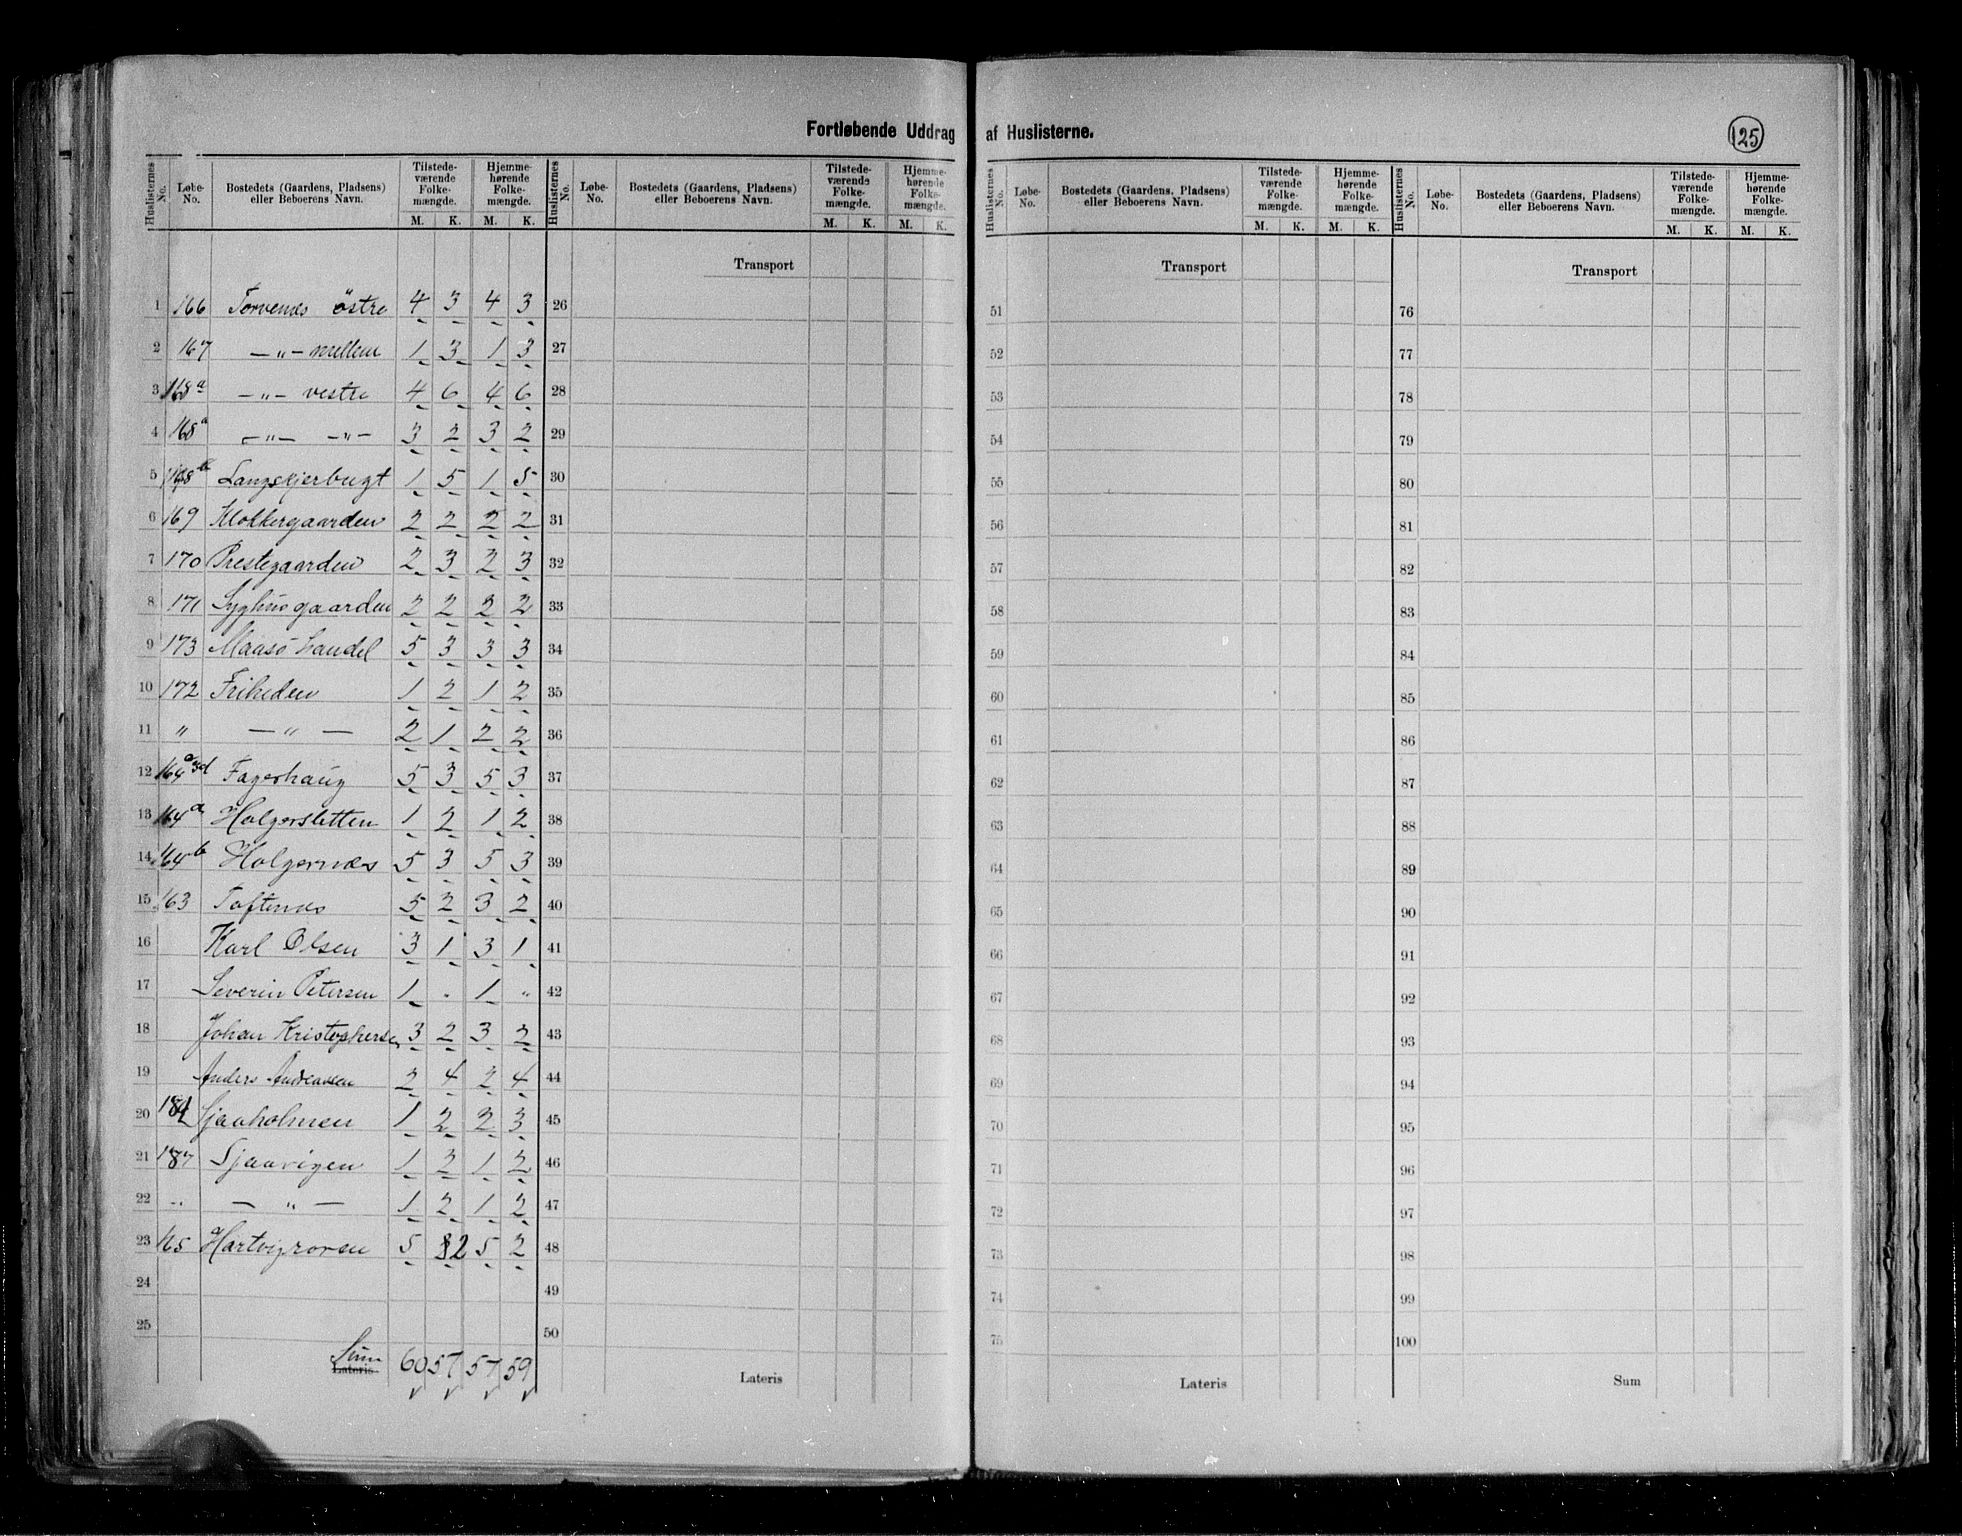 Fortløbende Uddrag af Huslisterne.
125
Huslisternes No. Løbe-No. Bostedets (Gaardens, Pladsens) eller Beboerens Navn. Tilstedeværende Folkemængde. M. K. Hjemmehørende Folkemængde. M. K.
Huslisternes No. Løbe-No. Bostedets (Gaardens, Pladsens) eller Beboerens Navn. Tilstedeværende Folkemængde. M. K. Hjemmehørende Folkemængde. M. K.
Huslisternes No. Løbe-No. Bostedets (Gaardens, Pladsens) eller Beboerens Navn. Tilstedeværende Folkemængde. M. K. Hjemmehørende Folkemængde. M. K.
Huslisternes No. Løbe-No. Bostedets (Gaardens, Pladsens) eller Beboerens Navn. Tilstedeværende Folkemængde. M. K. Hjemmehørende Folkemængde. M. K.
Transport Transport Transport
1 166 Torvenes östre 4 3 4 3 26 51 76
2 167 — " — mellem 1 3 1 3 27 52 77
3 168a — " — vestre 4 6 4 6 28 53 78
4 168a — " — — " — 3 2 3 2 29 54 79
5 168 Langskjerbugt 1 5 1 5 30 55 80
6 169 Klokkergaarden 2 2 2 2 31 56 81
7 170 Prestegaarden 2 3 2 3 32 57 82
8 171 Syghusgaarden 2 2 2 2 33 58 83
9 173 Maasö handel 5 3 3 3 34 59 84
10 172 Friheden 1 2 1 2 35 60 85
11 " — " — 2 1 2 2 36 61 86
12 164 Fagerhaug 5 3 5 3 37 62 87
13 164a Holgersletten 1 2 1 2 38 63 88
14 164b Holgernæs 5 3 5 3 39 64 89
15 163 Toftenes 5 2 3 2 40 65 90
16 Karl Olsen 3 1 3 1 41 66 91
17 Severin Petersen 1 " 1 " 42 67 92
18 Johan Kristophersen 3 2 3 2 43 68 93
19 Anders Andreassen 2 4 2 4 44 69 94
20 Sjaaholmen 1 2 2 3 45 70 95
21 187 Sjaavigen 1 2 1 2 46 71 96
22 " — " — 1 2 1 2 47 72 97
23 165 Hartvigroren 5 2 5 2 48 73 98
24 49 74 99
25 50 75 100
Sum 60 57 57 59
Lateris Lateris Lateris Sum